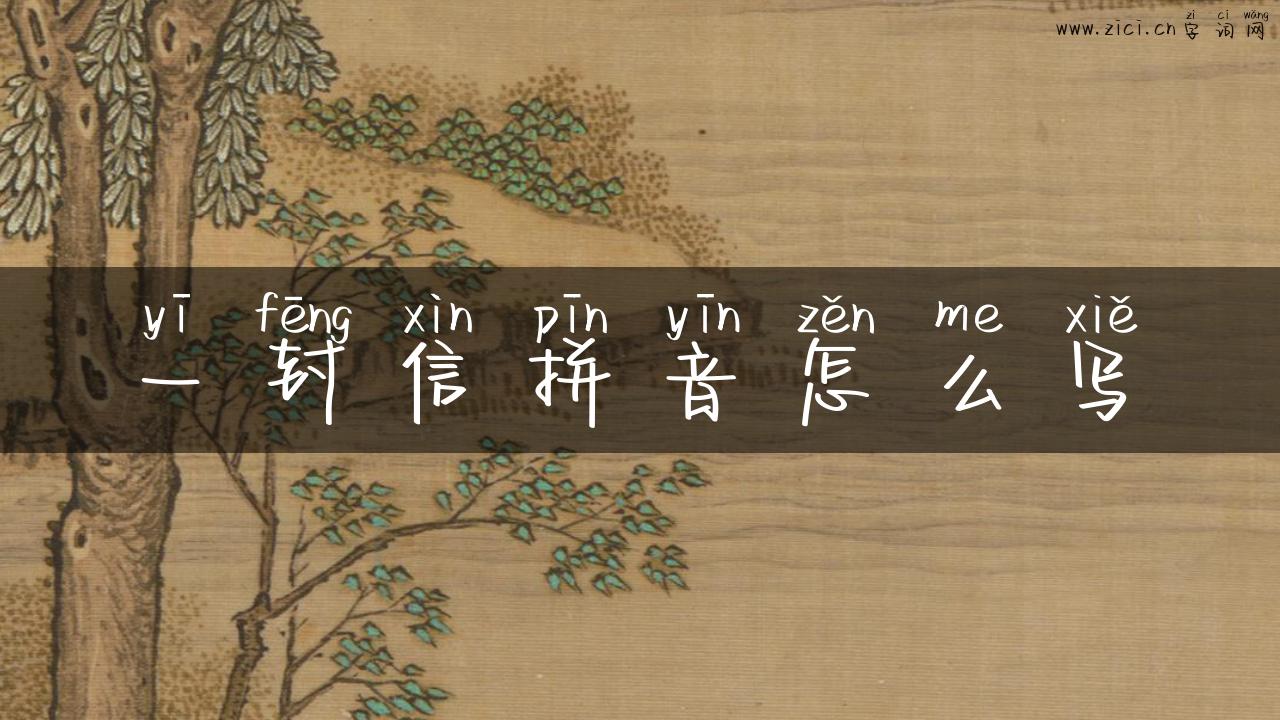 zì cí wǎng
www.zici.cn 字词网
yī fēng xìn pīn yīn zěn me xiě
一封信拼音怎么写